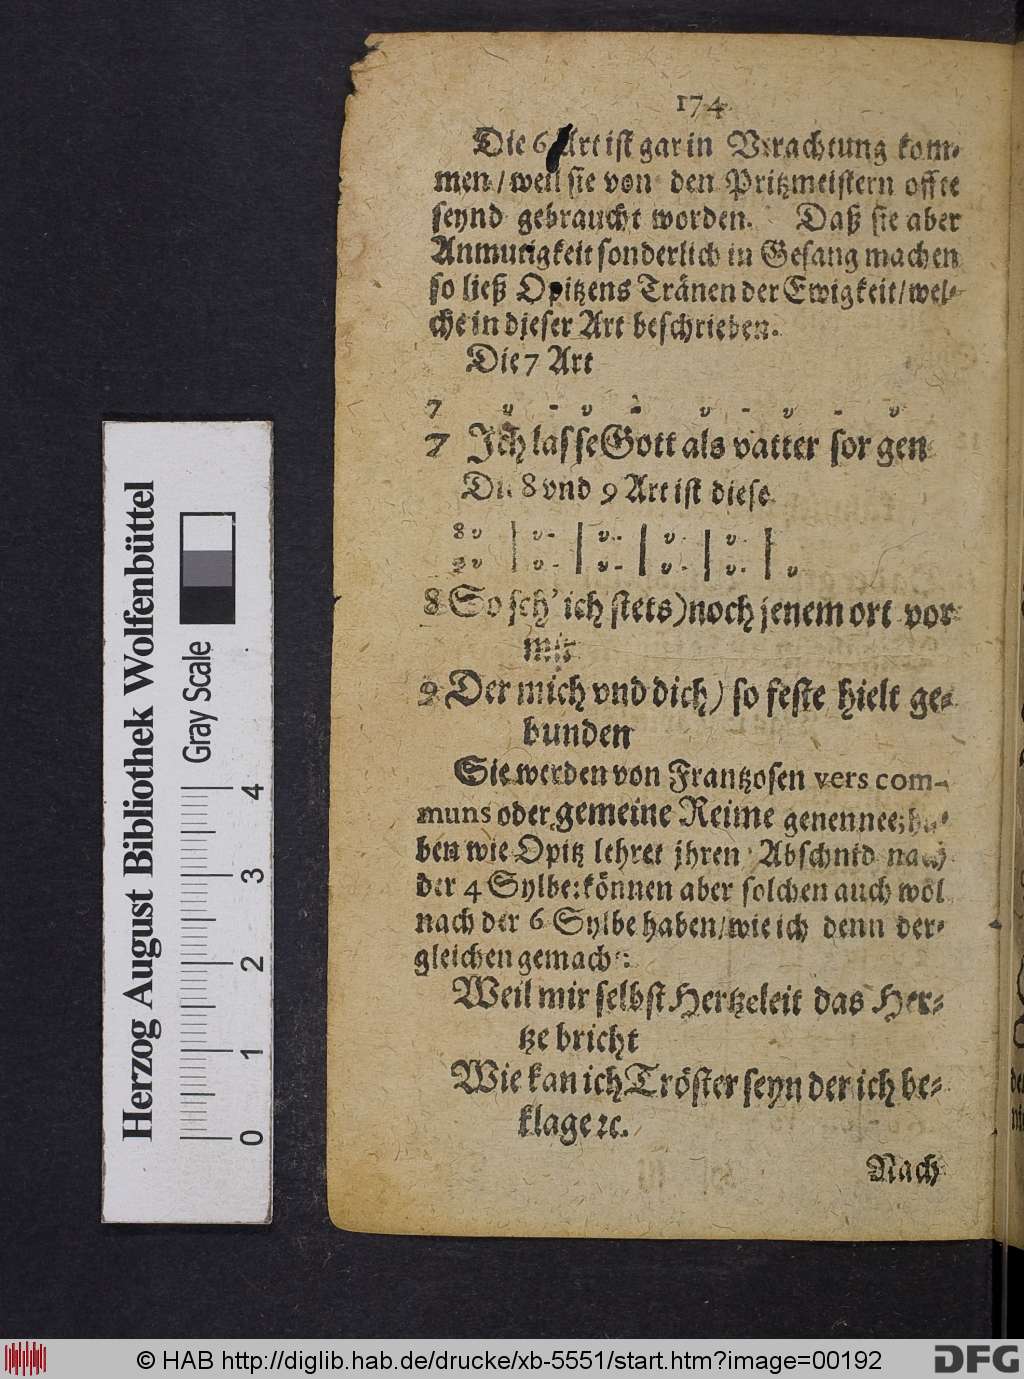 174
Die 6 Art ist gar in Verachtung kom-
men / weil sie von den Pritzmeistern offte
seynd gebraucht worden. Daß sie aber
Anmutigkeit sonderlich in Gesang machen
so ließ Opitzens Tränen der Ewigkeit / wel-
che in dieser Art beschrieben.
Die 7 Art
7 v - v - v - v - v
7 Ich lasse Gott als vatter sorgen
Die 8 vnd 9 Art ist diese
8 v | v - | v - | v - | v - |
9 v | v - | v - | v - | v - | v
8 So seh' ich stets) noch jenem ort vor
mir
9 Der mich vnd dich) so feste hielt ge-
bunden
Sie werden von Frantzosen vers com-
muns oder gemeine Reime genennet; ha-
ben wie Opitz lehret jhren Abschnid nach
der 4 Sylbe: können aber solchen auch wol
nach der 6 Sylbe haben / wie ich denn der-
gleichen gemacht:
Weil mir selbst Hertzeleit das Her-
tze bricht
Wie kan ich Tröster seyn der ich be-
klage ꝛc.
Nach
Herzog August Bibliothek Wolfenbüttel
Gray Scale
0 1 2 3 4
© HAB http://diglib.hab.de/drucke/xb-5551/start.htm?image=00192
DFG